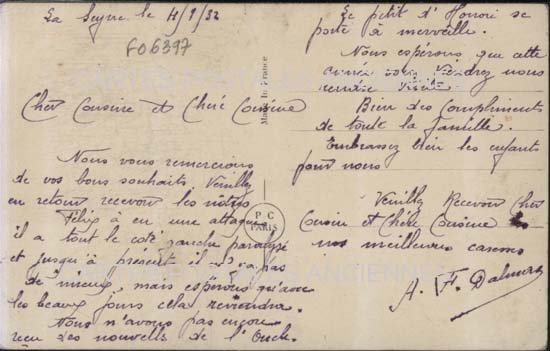 La Seyne le 4/1/32
F06397
Cher Cousine et Chére Cousine
Nous vous remercions
de vos bons souhaits Veuillez
en retour recevoir les notres
Félix à eu une attaque
il a tout le coté gauche paralysé
et jusqu'à present il n'y a pas
de mieux, mais espérons qu'avec
les beaux jours cela reviendra.
Nous n'avons pas encore
reçu des nouvelles de l'Oncle.
Le petit d'Honoré se
porte à merveille.
Nous espérons que cette
année vous viendrez nous
rendre visite
Bien des compliments
de toute la famille.
Embrassez bien les enfants
pour nous
Veuillez Recevoir Cher
Cousin et Chére Cousine
nos meilleures caresses
A. F. Dalmas
Made in France
P C
PARIS
ANCIENNES